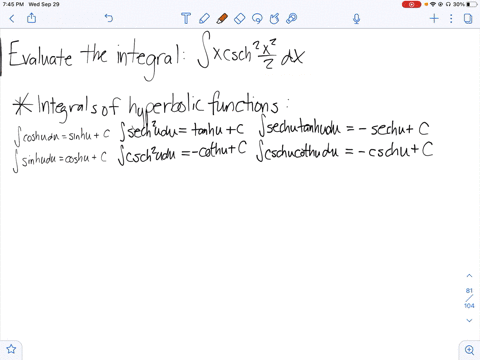 7:45 PM Wed Sep 29
30%
Evaluate the integral: ∫xcsch²x²/2 dx
* Integrals of hyperbolic functions:
∫coshudu = sinhu + C ∫sech²udu = tanhu + C ∫sechutanhudu = -sechu + C
∫sinhudu = coshu + C ∫csch²udu = -cothu + C ∫cschucothudu = -cschu + C
81
/
104